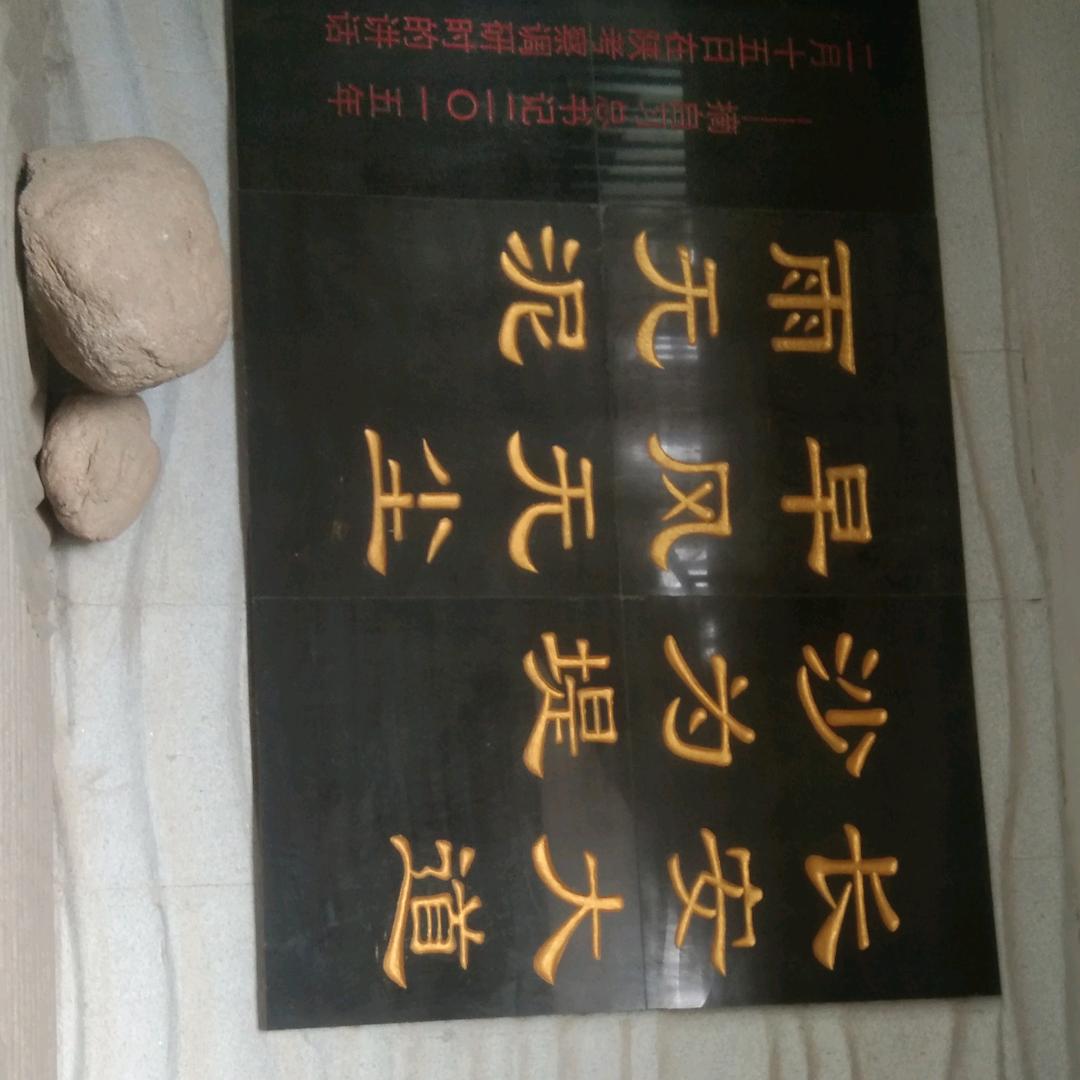 长安大道
沙为堤
早风无尘
雨无泥
——摘自习总书记二〇一五年
二月十五日在陕考察调研时的讲话